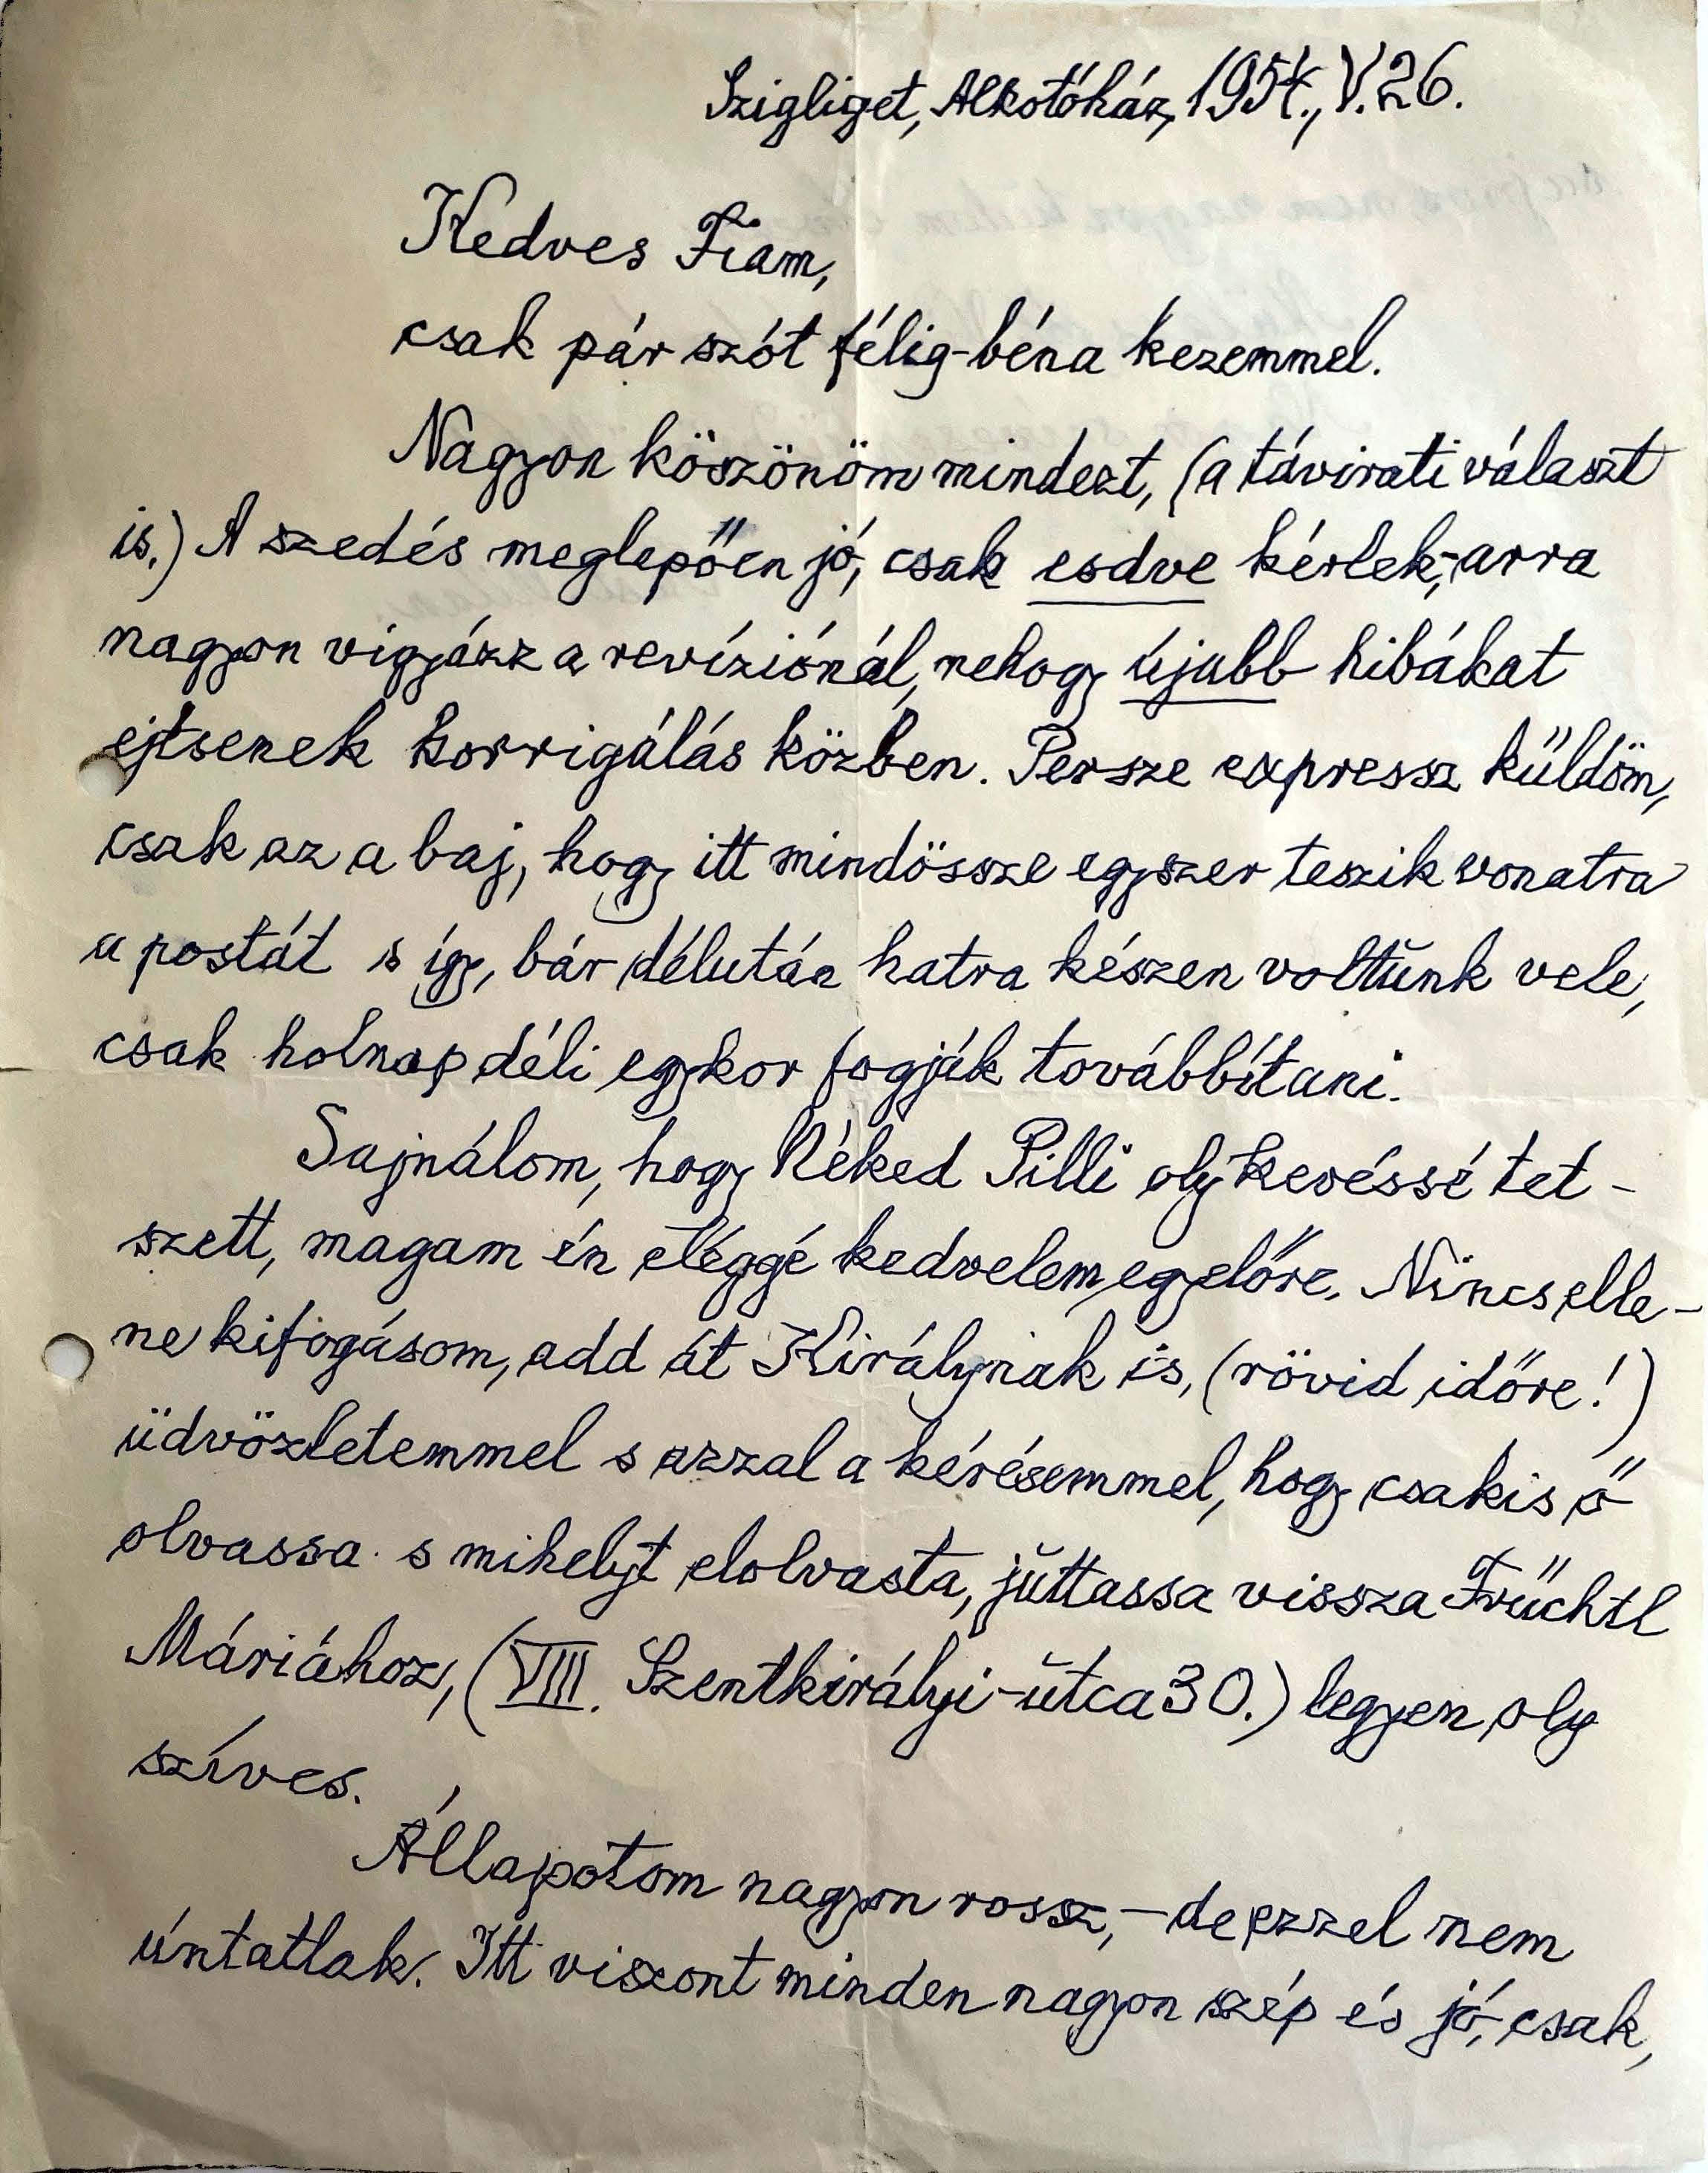 Szigliget, Alkotóház, 1954., V. 26.
Kedves Fiam,
csak pár szót félig-béna kezemmel.
Nagyon köszönöm mindezt, (a távirati választ
is.) A szedés meglepően jó, csak esdve kérlek, - arra
nagyon vigyázz a revíziónál, nehogy újabb hibákat
ejtsenek korrigálás közben. Persze expressz küldöm,
csak az a baj, hogy itt mindössze egyszer teszik vonatra
a postát s így, bár délután hatra készen voltunk vele,
csak holnap déli egykor fogják továbbítani.
Sajnálom, hogy Néked Pilli oly kevéssé tet-
szett, magam én eléggé kedvelem egyelőre. Nincs elle-
ne kifogásom, add át Királynak is, (rövid időre!)
üdvözletemmel s azzal a kérésemmel, hogy csakis ő
olvassa s mihelyt elolvasta, juttassa vissza Früchtl
Máriához, (VIII. Szentkirályi-utca 30.) legyen oly
szíves.
Állapotom nagyon rossz, - de ezzel nem
úntatlak. Itt viszont minden nagyon szép és jó, csak,